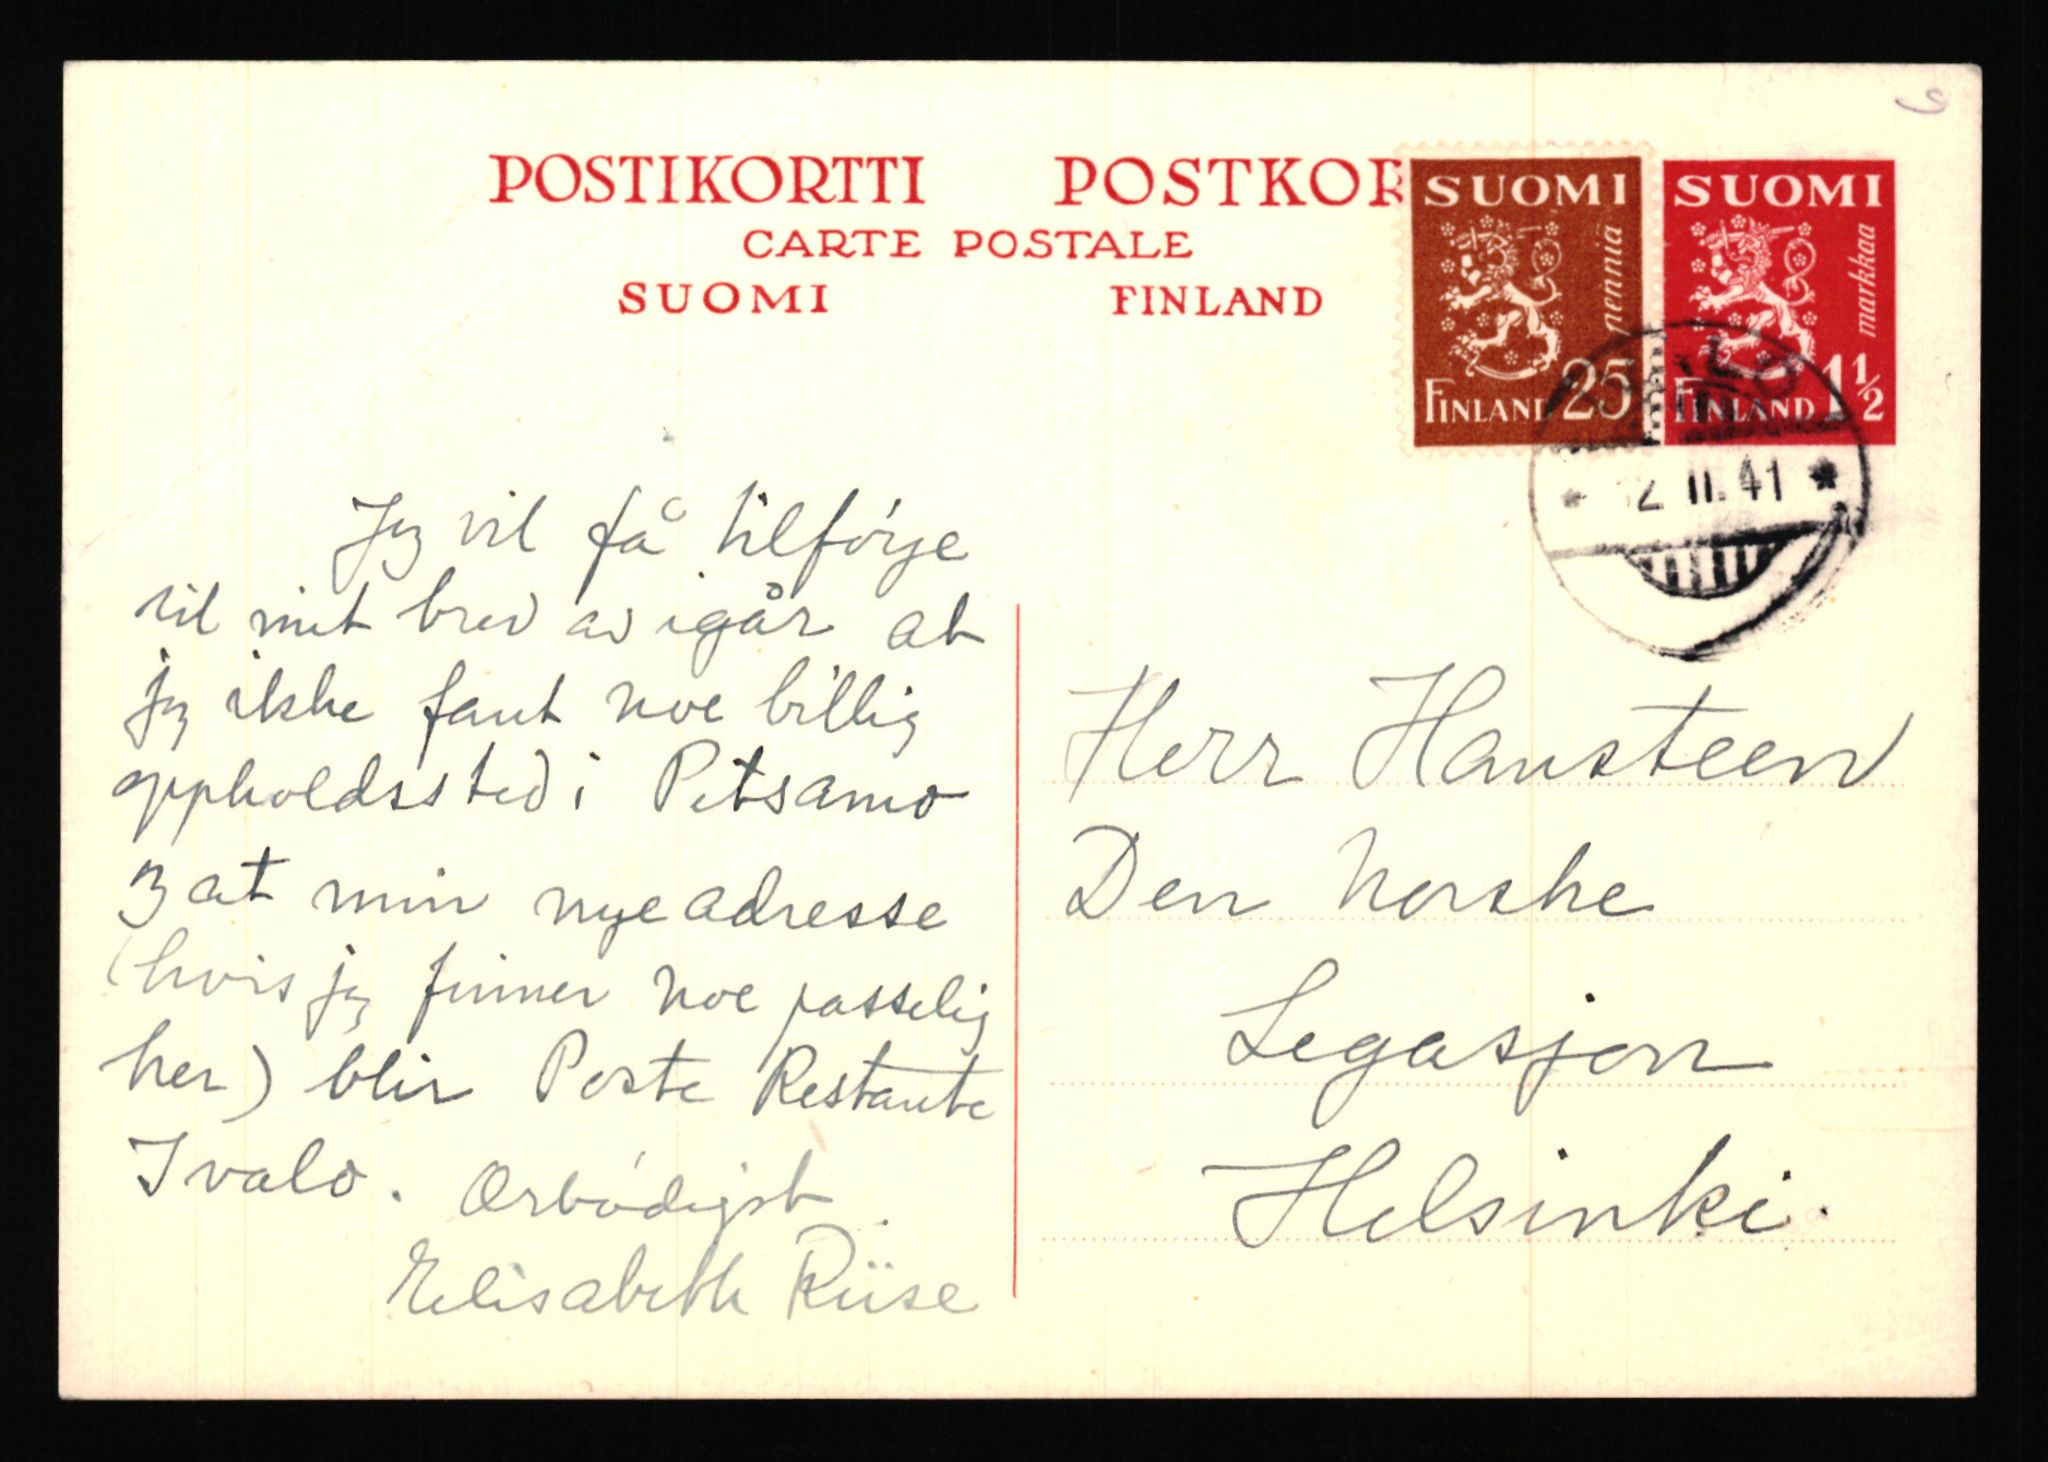 POSTIKORTTI POSTKOR
CARTE POSTALE
SUOMI FINLAND
SUOMI
pennia
FINLAND 25
SUOMI
markkaa
FINLAND 1½
2 II. 41
Jeg vil få tilføye
til mit brev av igår at
jeg ikke fant noe billig
oppholdssted i Petsamo
og at min nye adresse
(hvis jeg finner noe passelig
her) blir Poste Restante
Ivalo. Ærbødigst
Elisabeth Riise
Herr Hansteen
Den Norske
Legasjon
Helsinki.